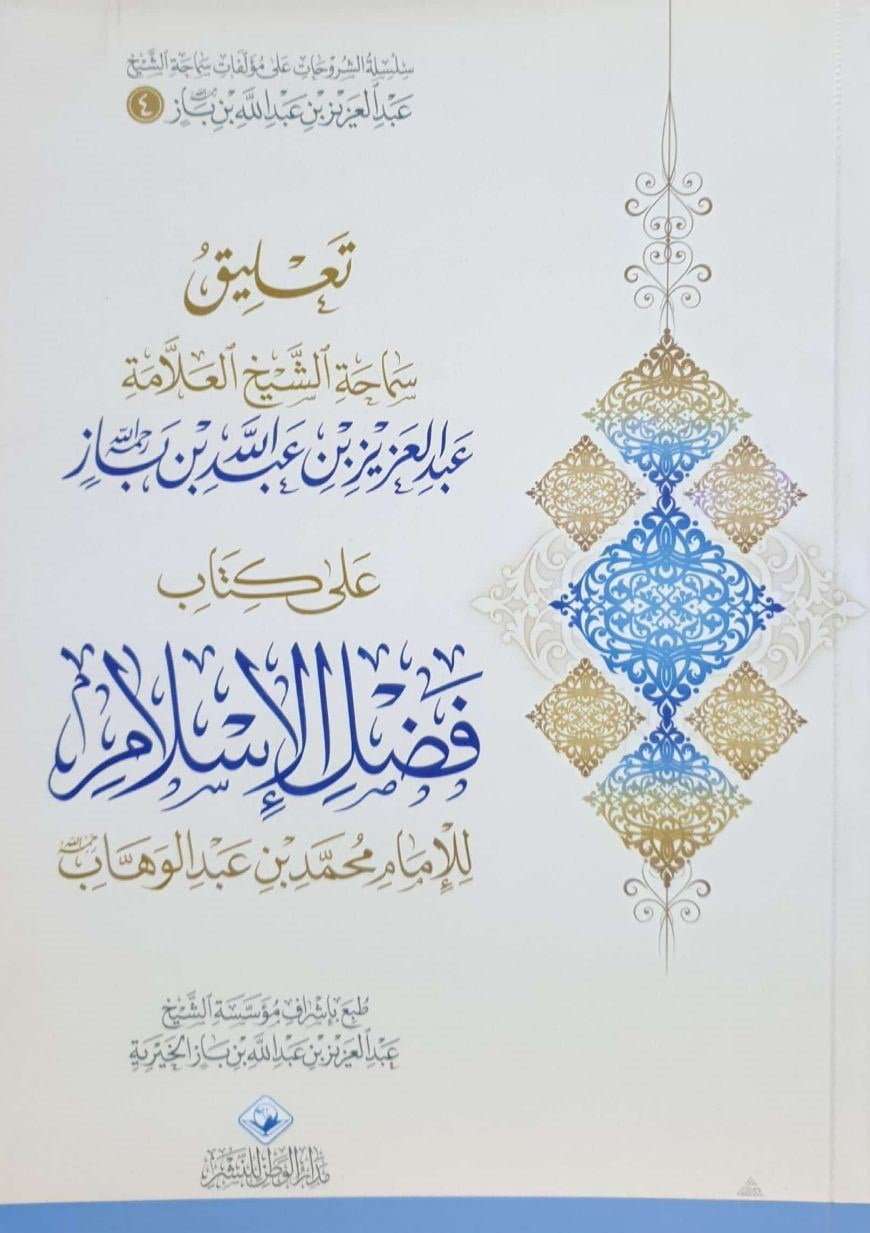 سِلْسِلَةُ الشُّرُوحَاتِ عَلَى مُؤَلَّفَاتِ سَمَاحَةِ الشَّيْخِ
عَبْدِ الْعَزِيزِ بْنِ عَبْدِ اللَّهِ بْنِ بَازٍ رحمه الله ٤
تَعْلِيقُ
سَمَاحَةِ الشَّيْخِ الْعَلَّامَةِ
عَبْدِ الْعَزِيزِ بْنِ عَبْدِ اللَّهِ بْنِ بَازٍ رحمه الله
عَلَى كِتَابِ
فَضْلِ الْإِسْلَامِ
لِلْإِمَامِ مُحَمَّدِ بْنِ عَبْدِ الْوَهَّابِ رحمه الله
طُبِعَ بِإِشْرَافِ مُؤَسَّسَةِ الشَّيْخِ
عَبْدِ الْعَزِيزِ بْنِ عَبْدِ اللَّهِ بْنِ بَازٍ الْخَيْرِيَّةِ
مَدَارُ الْوَطَنِ لِلنَّشْرِ